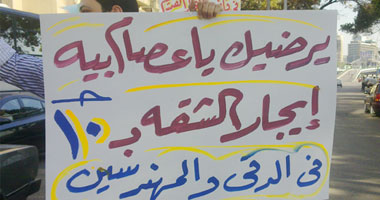 يرضيك ياعصام بيه
إيجار الشقه بـ ١٠ جـ
فى الدقى والمهندسين